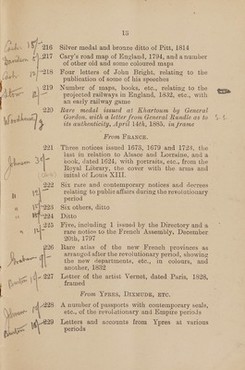 13
216 Silver medal and bronze ditto of Pitt, 1814
217 Cary's road map of England, 1794, and a number
of other old and some coloured maps
218 Four letters of John Bright, relating to the
publication of some of his speeches
219 Number of maps, books, etc., relating to the
projected railways in England, 1832, etc., with
an early railway game
220 Rare medal issued at Khartoum by General
Gordon, with a letter from General Rundle as to
its authenticity, April 14th, 1885, in frame
From FRANCE.
221 Three notices issued 1673, 1679 and 1724, the
last in relation to Alsace and Lorraine, and a
book, dated 1624, with portraits, etc., from the
Royal Library, the cover with the arms and
initial of Louis XIII.
222 Six rare and contemporary notices and decrees
relating to public affairs during the revolutionary
period
223 Six others, ditto
224 Ditto
225 Five, including 1 issued by the Directory and a
rare notice to the French Assembly, December
20th, 1797
226 Rare atlas of the new French provinces as
arranged after the revolutionary period, showing
the new departments, etc., in colours, and
another, 1832
227 Letter of the artist Vernet, dated Paris, 1828,
framed
From YPRES, DIXMUDE, ETC.
228 A number of passports with contemporary seals,
etc., of the revolutionary and Empire periods
229 Letters and accounts from Ypres at various
periods